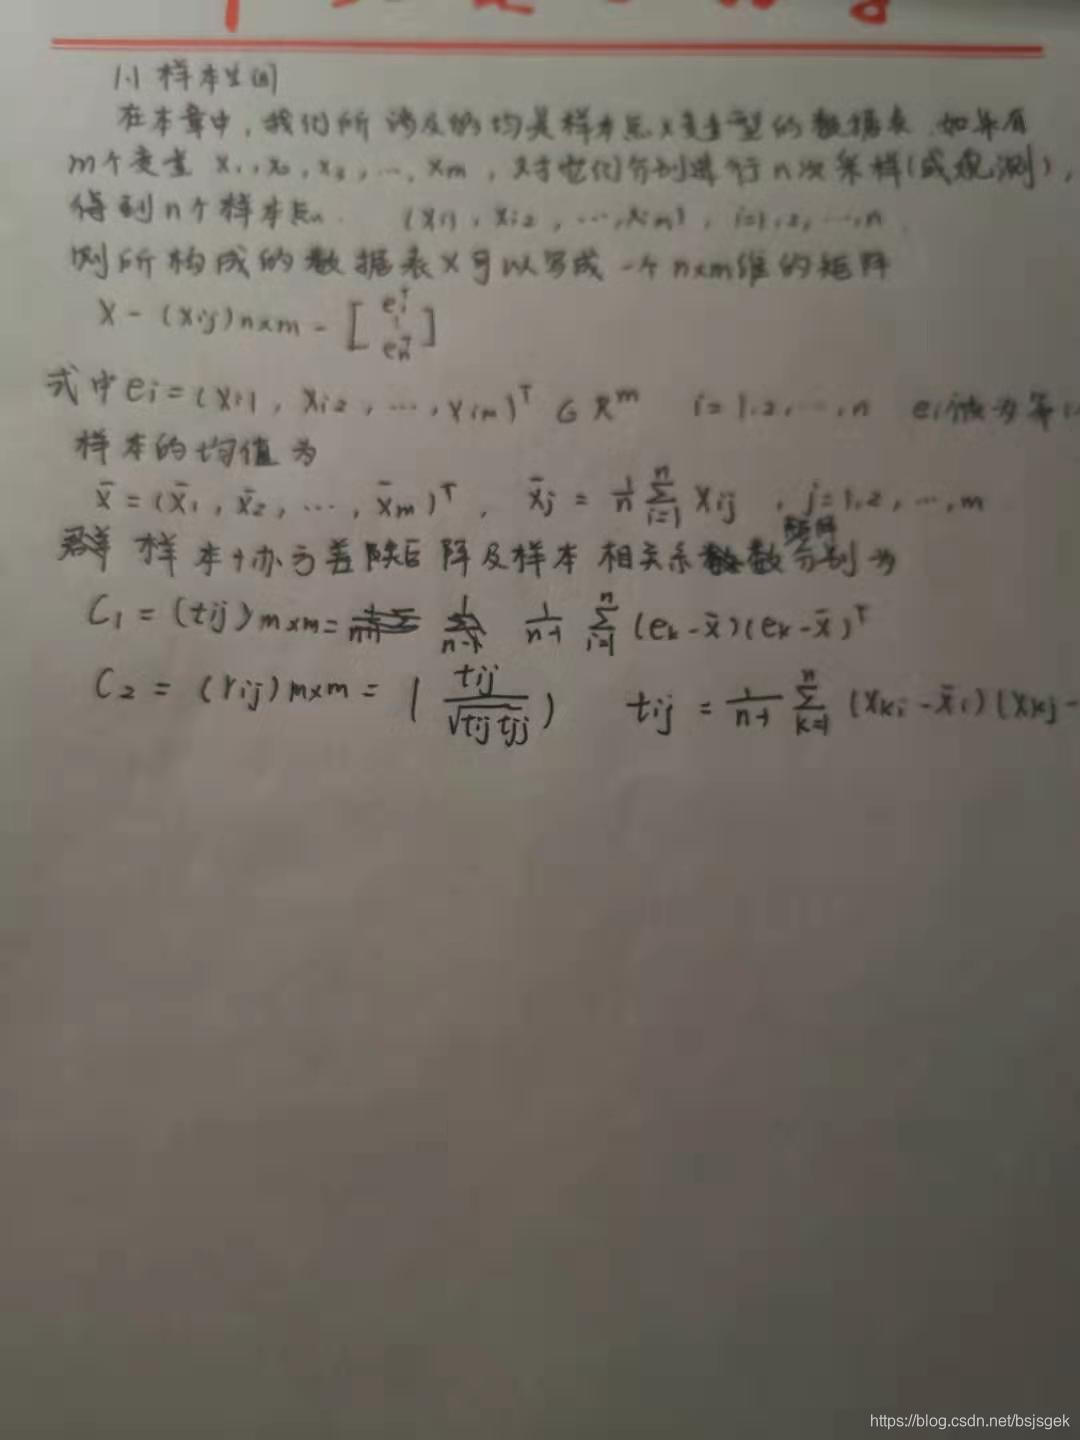 1.1 样本空间
在本章中，我们所涉及的均是样本点×变量型的数据表.如果有
m个变量 x₁,x₂,x₃,…,xm，对它们分别进行n次采样(或观测)，
得到n个样本点 (xi1, xi2, …, xim), i=1,2,…,n
则所构成的数据表X可以写成一个n×m维的矩阵
X - (xij)n×m - [e₁ᵀ ⋮ enᵀ]
式中ei=(xi1, xi2, …, xim)ᵀ ∈ Rᵐ i=1,2,…,n ei被为第i
样本的均值为
x̄=(x̄₁, x̄₂, …, x̄m)ᵀ, x̄j = 1/n ∑ᵢ₌₁ⁿ xij , j=1,2,…,m
样本协方差矩阵及样本相关系数矩阵分别为
C₁ = (tij)m×m= 1/(n-1) ∑ᵢ₌₁ⁿ (ek-x̄)(ek-x̄)ᵀ
C₂ = (rij)m×m = (tij/√(tij tjj)) tij = 1/(n-1) ∑ₖ₌₁ⁿ (xki-x̄i)(xkj-
https://blog.csdn.net/bsjsgek